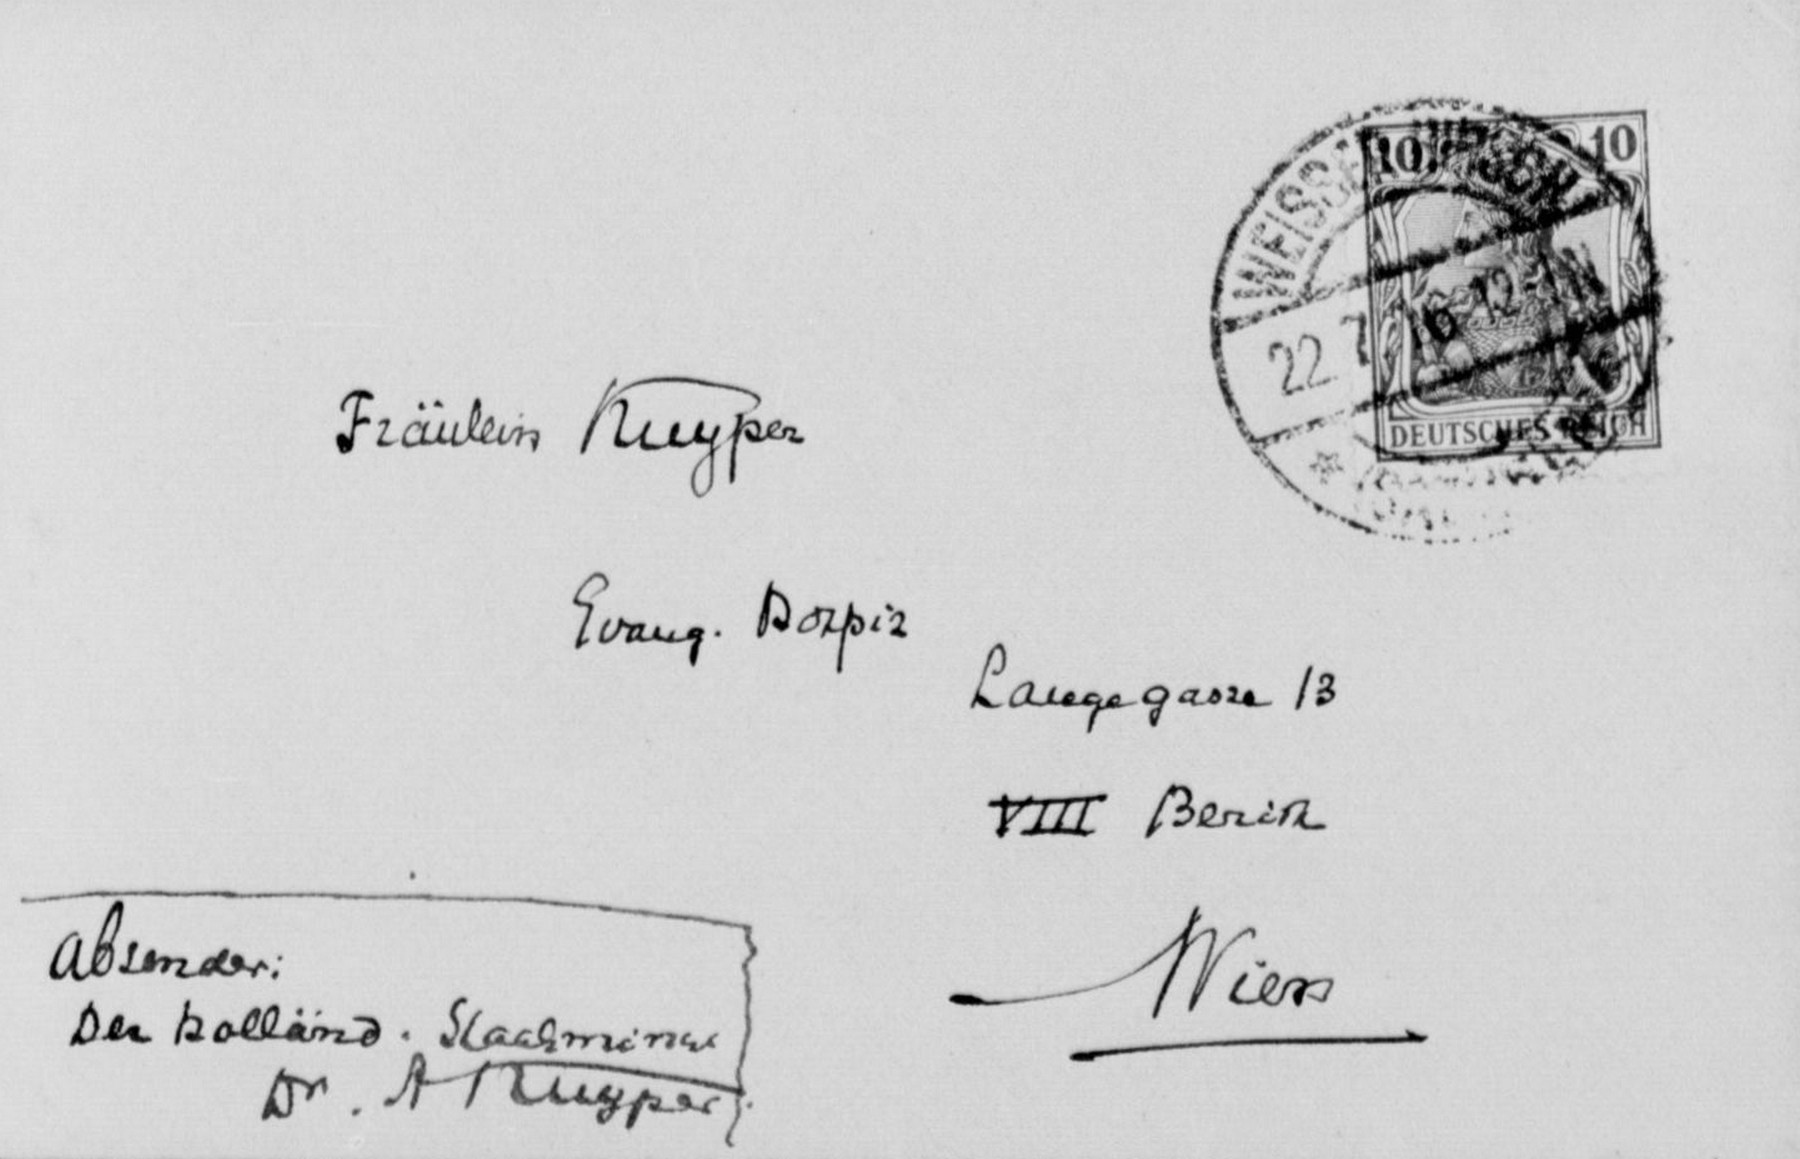 10 10
22.7.16.12-1N
DEUTSCHES REICH
Fräulein Kuyper
Evang. Hospiz
Langegasse 13
VIII Bezirk
Wien
Absender:
Der holländ. Staatsminist
Dr. A Kuyper.